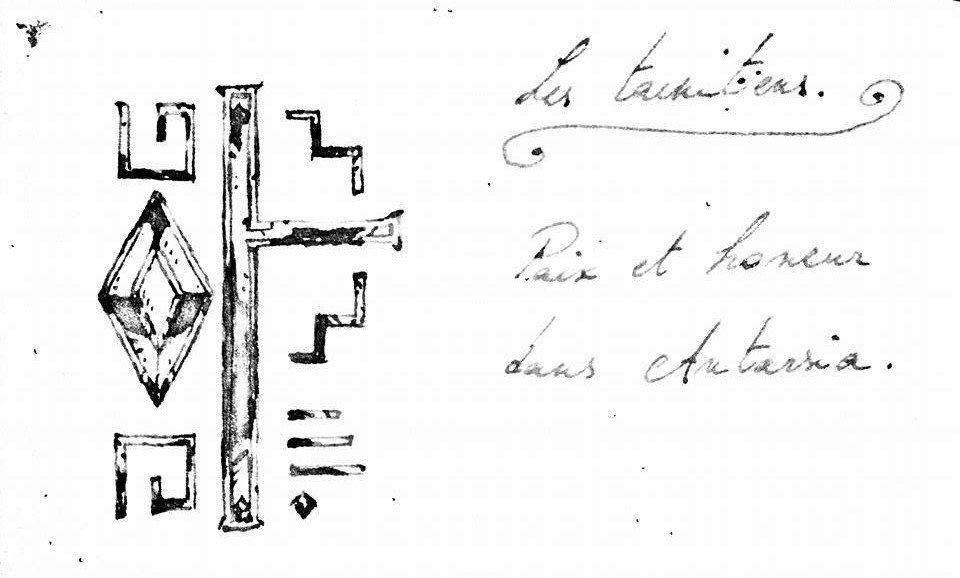 Les taenitiens.
Paix et honeur
dans Antarsia.